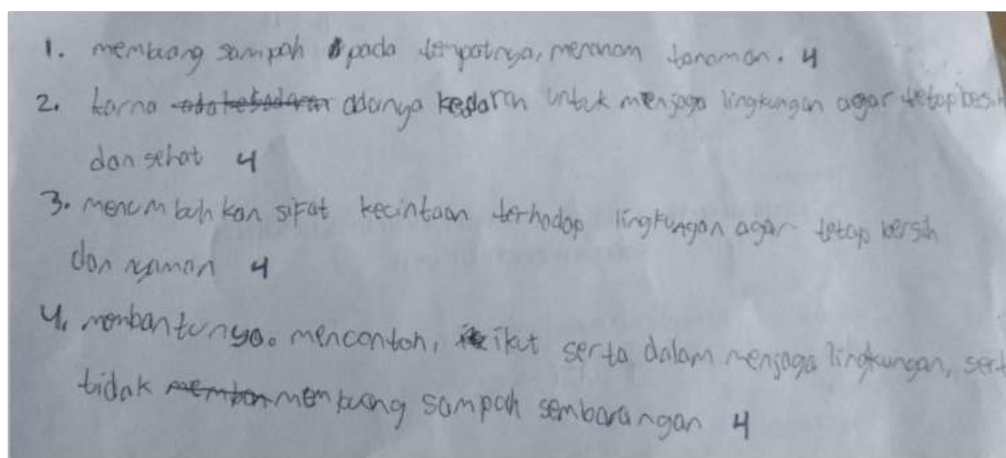 1. membuang sampah pada tempatnya, menanam tanaman. 4
2. karna adanya kesdaran untuk menjaga lingkungan agar tetap besih
dan sehat 4
3. menumbuhkan sifat kecintaan terhadap lingkungan agar tetap bersih
dan nyaman 4
4. membantunya. mencontoh, ikut serta dalam menjaga lingkungan, sert
tidak membuang sampah sembarangan 4